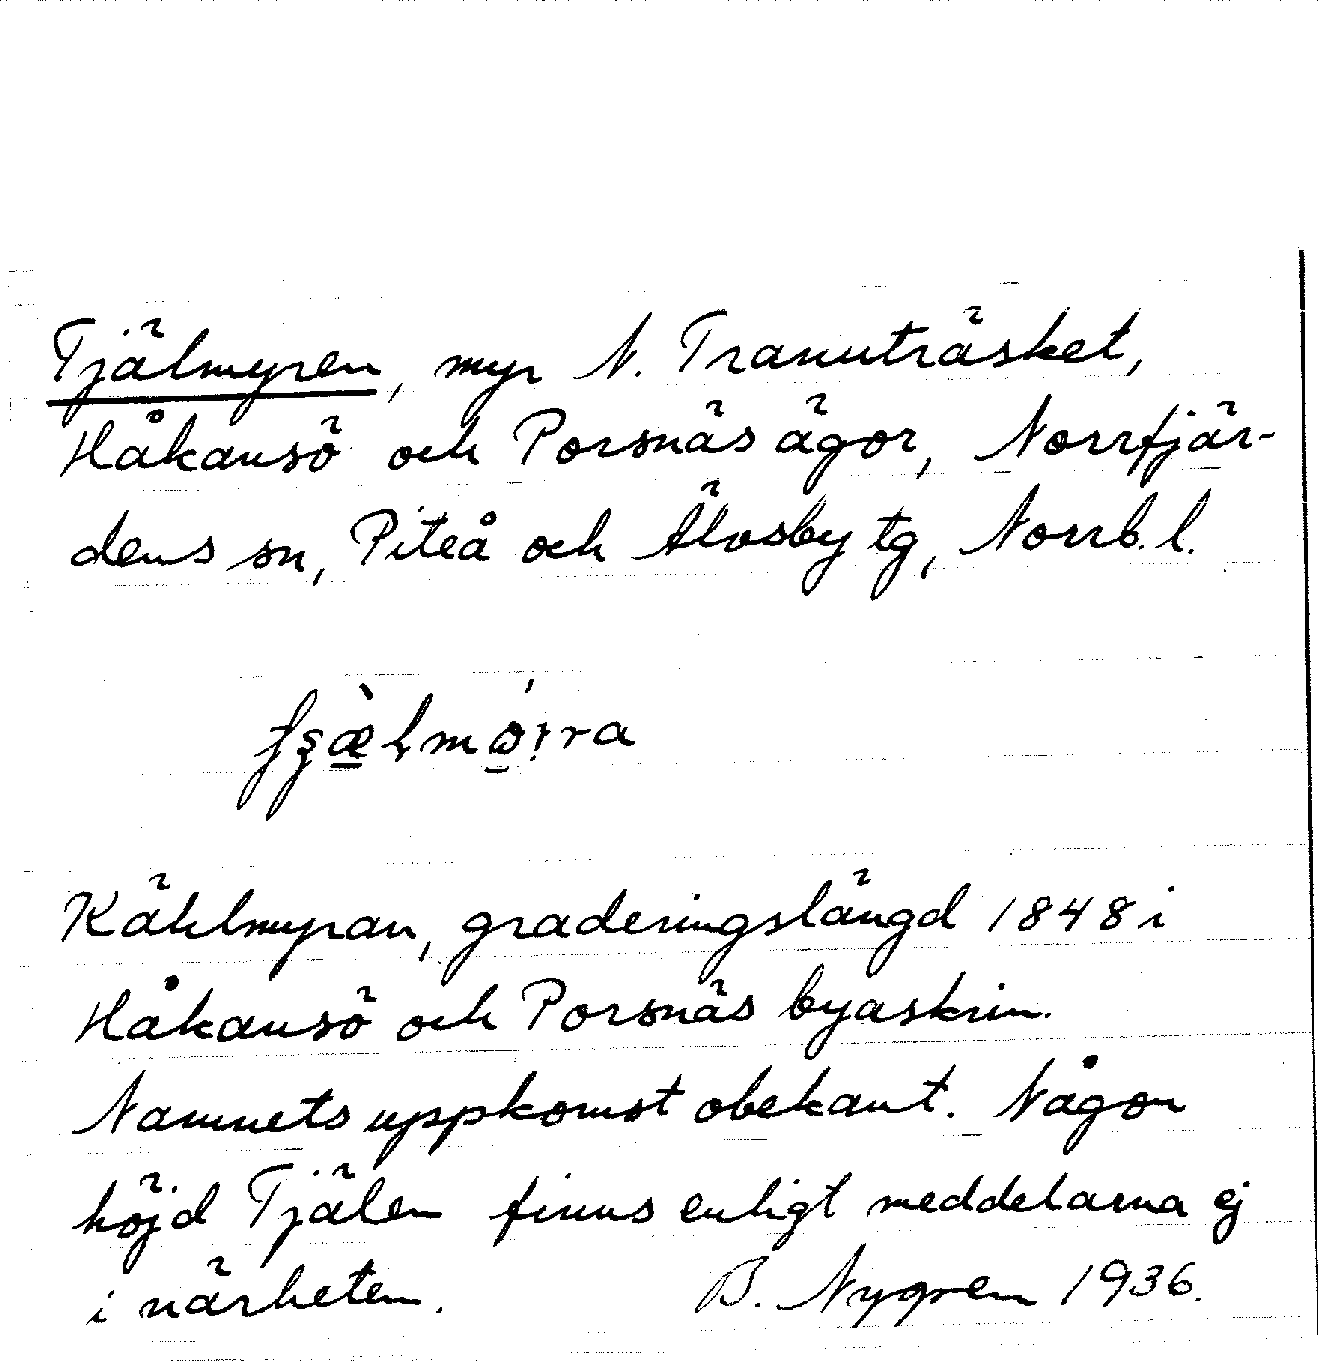 Tjälmyren, myr N. Tranuträsket,
Håkansö och Porsnäs ägor, Norrfjär-
dens sn, Piteå och Älvsby tg, Norrb. l.
Kählmyran, graderingslängd 1848 i
Håkansö och Porsnäs byaskrin.
Namnets uppkomst obekant. Någon
höjd Tjälen finns enligt meddelarna ej
i närheten. B. Nygren 1936.